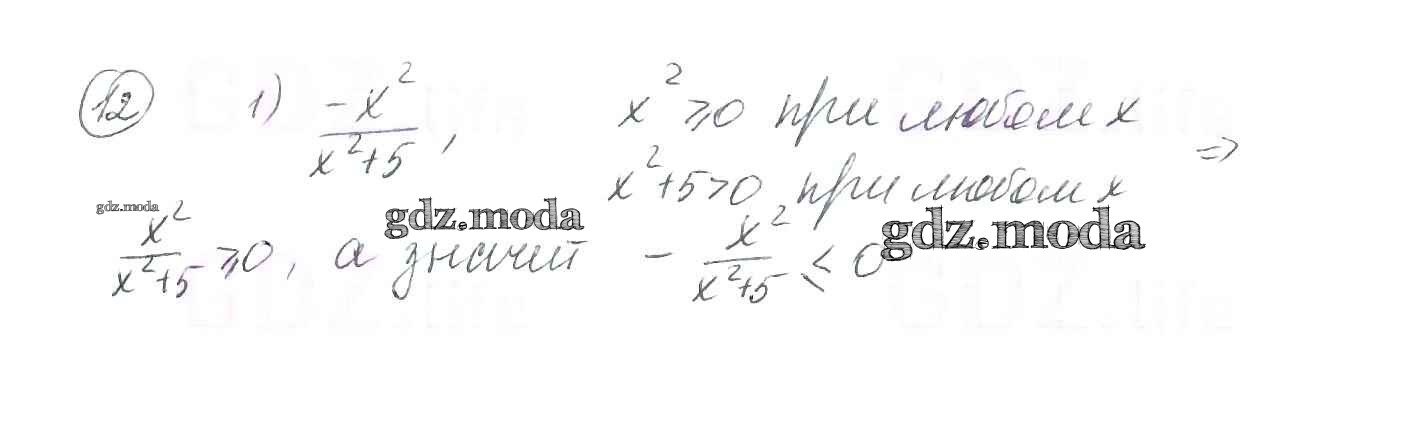 12 1) -x²/(x²+5), x² ≥ 0 при любом x
x²+5>0 при любом x =>
x²/(x²+5) ≥ 0, а значит - x²/(x²+5) ≤ 0
gdz.moda
gdz.moda
gdz.moda
GDZ.life
GDZ.life
GDZ.life
GDZ.life